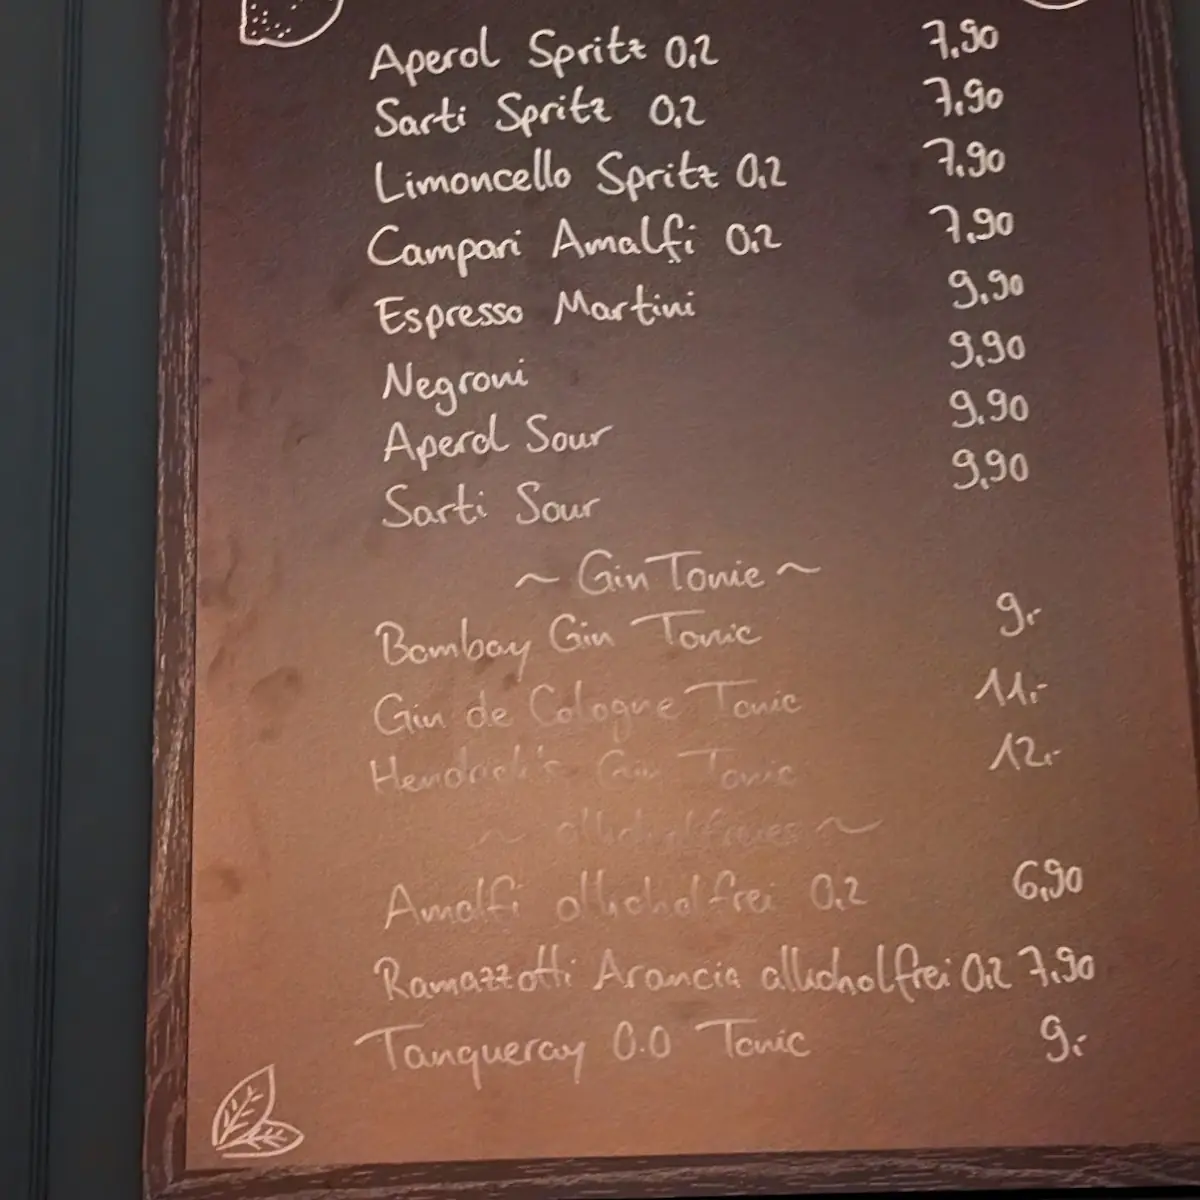 Aperol Spritz 0,2 7,90
Sarti Spritz 0,2 7,90
Limoncello Spritz 0,2 7,90
Campari Amalfi 0,2 7,90
Espresso Martini 9,90
Negroni 9,90
Aperol Sour 9,90
Sarti Sour 9,90
~ Gin Tonic ~
Bombay Gin Tonic 9,-
Gin de Cologne Tonic 11,-
Hendrick's Gin Tonic 12,-
~ alkoholfreies ~
Amalfi alkoholfrei 0,2 6,90
Ramazzotti Arancia alkoholfrei 0,2 7,90
Tanqueray 0.0 Tonic 9,-